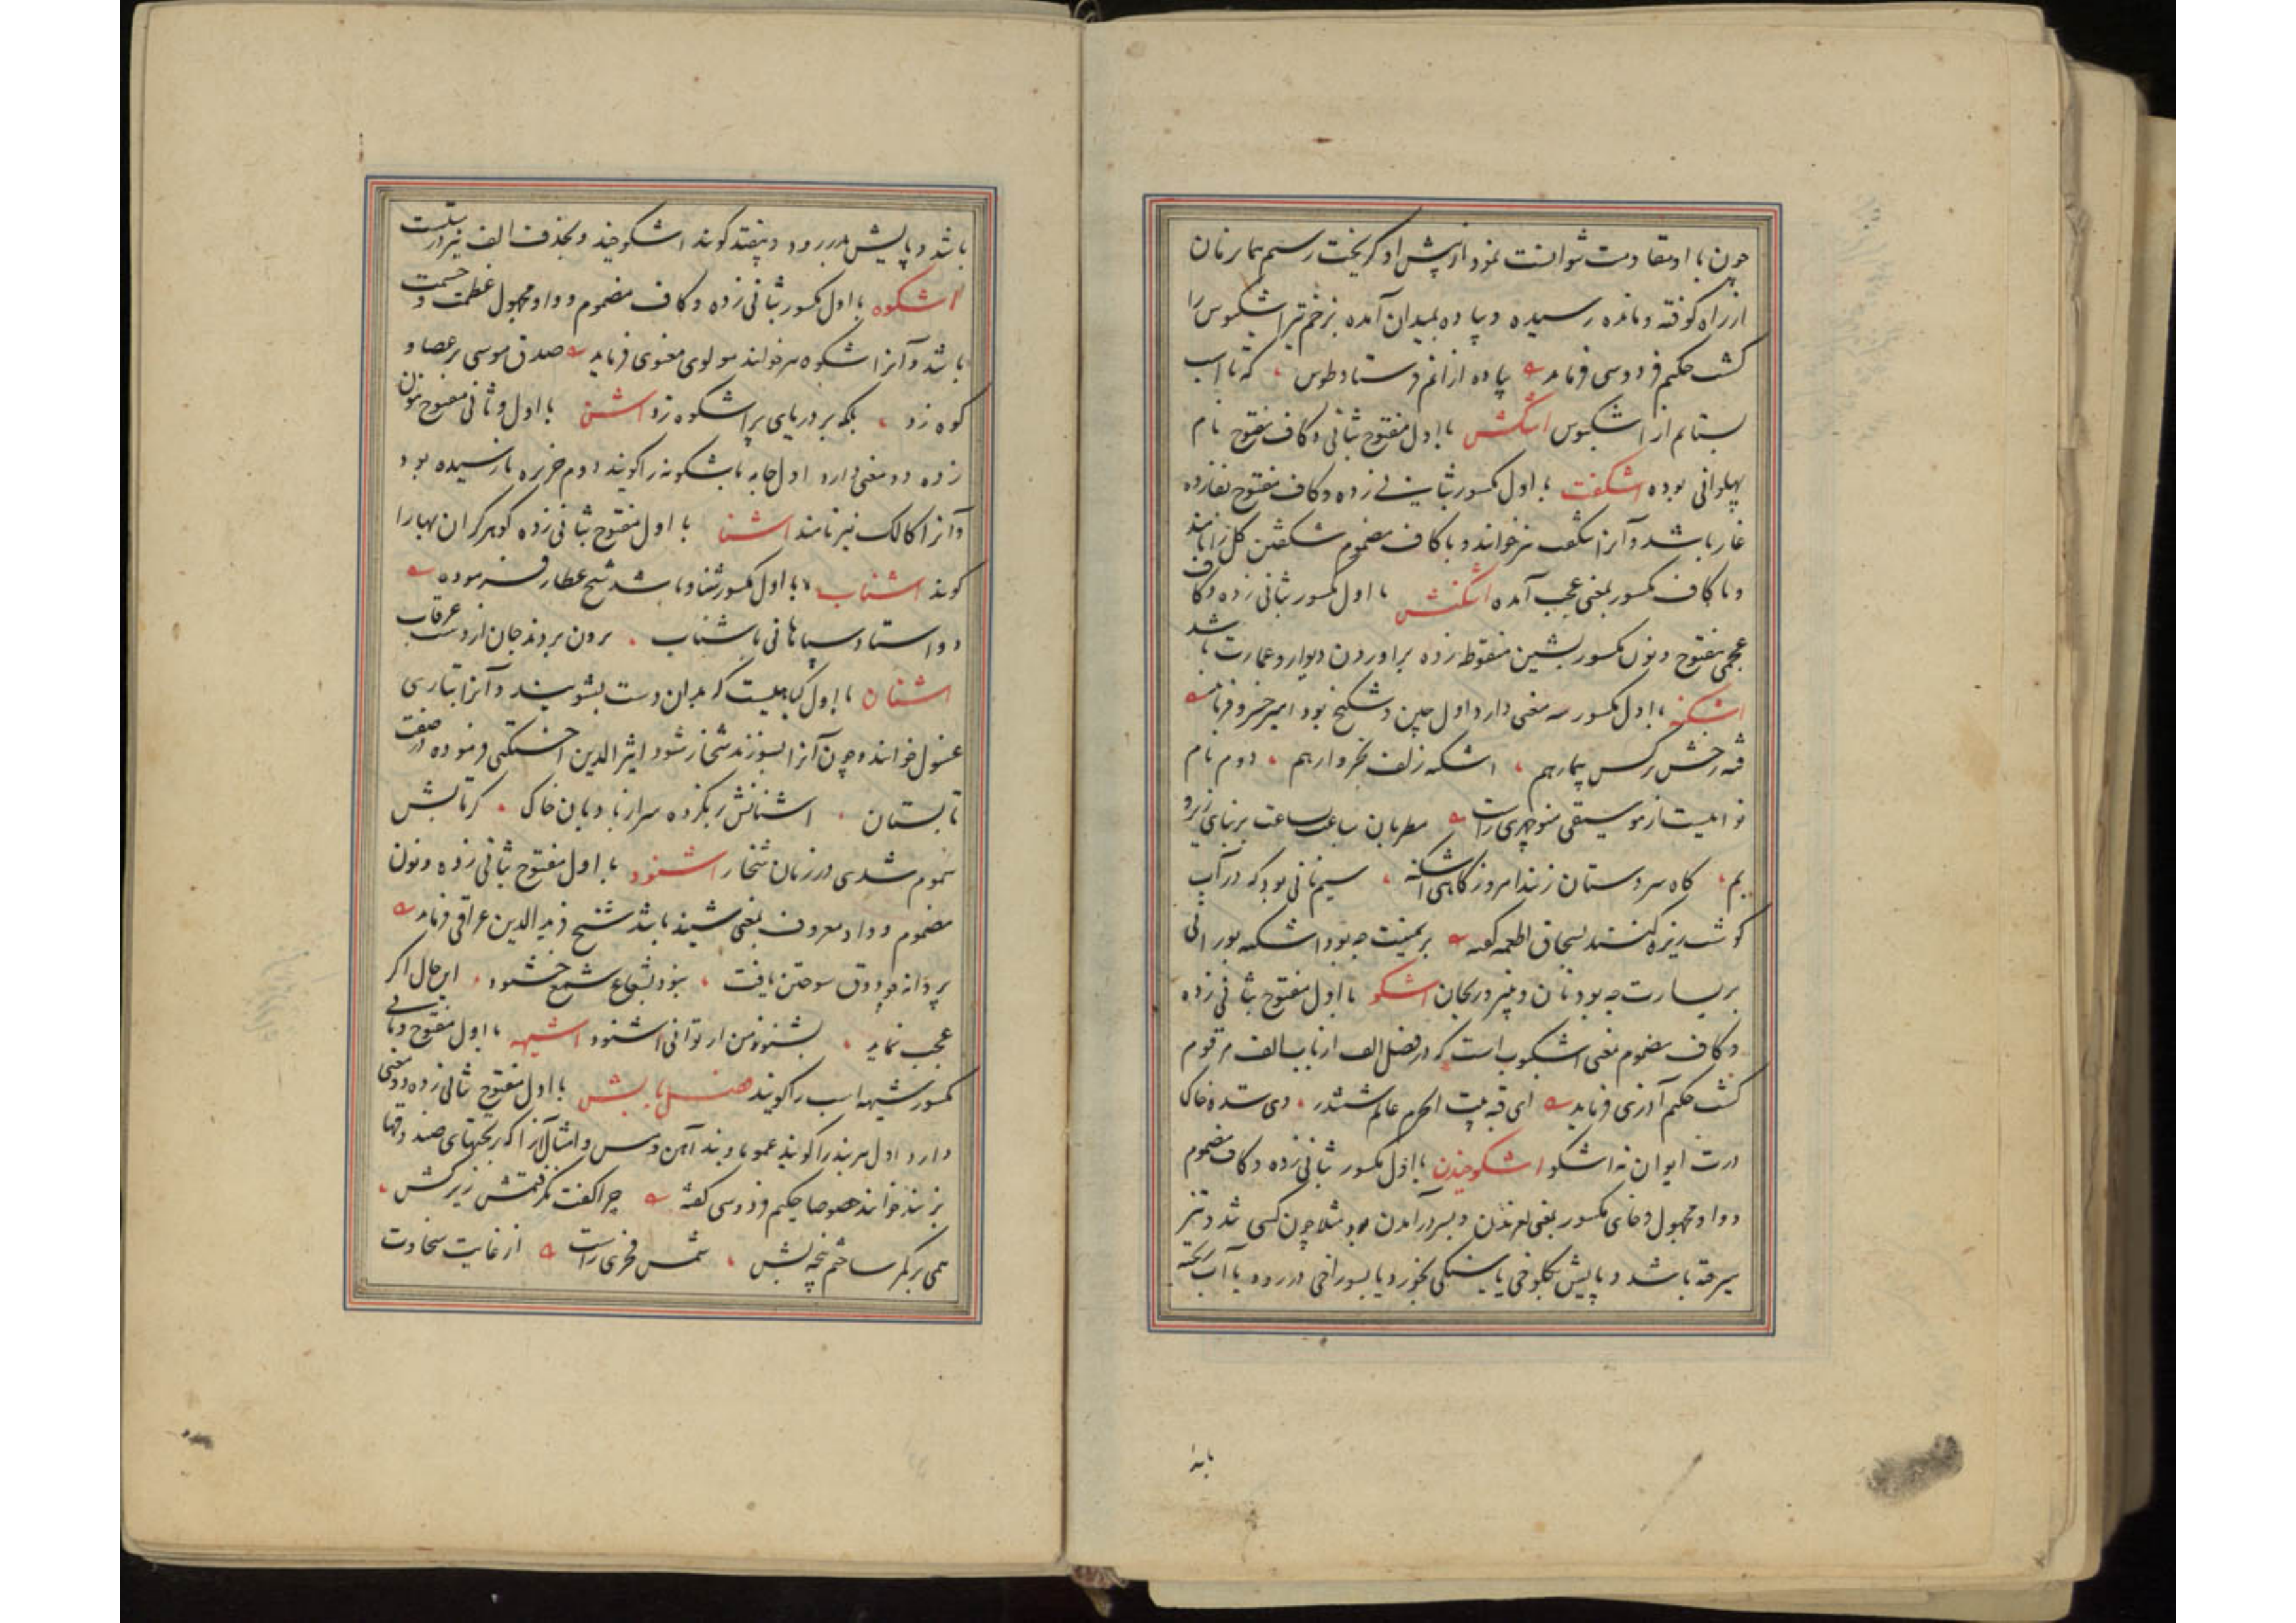 چون با او مقاومت نتوانست نمود از پیش او گریخت رستم همان زمان
از راه کوفته و مانده رسیده و پیاده بمیدان آمده بزخم تیر اشکبوس را
کشت حکیم فردوسی فرماید پیاده از انم فرستاد طوس که تا اسب
بستانم از اشکبوس اشکش با اول مفتوح بثانی و کاف مفتوح نام
پهلوانی بوده اشکفت با اول مکسور بثانی زده و کاف مفتوح بفا زده
غار باشد و آنرا شکفت نیز خوانند و با کاف مضموم شکفتن کل را نامند
و با کاف مکسور بمعنی عجب آمده اشکنش با اول مکسور بثانی زده و کاف
عجمی مفتوح و نون مکسور بشین منقوطه زده براوردن دیوار و عمارت باشد
اشکنه با اول مکسور سه معنی دارد اول چین و شکنج بود امیر خسرو فرماید
فتنه رخش نرکس بیمار هم اشکنه زلف نکو وار هم دوم نام
نوائیست از موسیقی منوچهری راست مطربان ساعت بساعت بر نوای زیر و
بم گاه سروستان زنند امروز گاهی اشکنه سیم نانی بود که در آب
گوشت ریزه کنند بسحاق اطعمه گفته بر یمینت چه بود اشکنه بورانی
بر یسارت چه بود نان و پنیر و ریحان اشکو با اول مفتوح بثانی زده
و کاف مضموم بمعنی اشکوب است که در فصل الف از باب الف مرقوم
کشت حکیم آذری فرماید ای قبه بیت الحرم عالم ششدر وی سده خاک
درت ایوان نه اشکو اشکوخیدن با اول مکسور بثانی زده و کاف مضموم
و واو مجهول و خای مکسور بمعنی لغزیدن و بسر درآمدن بود مثلا چون کسی تند و تیز
میرفته باشد و پایش بکلوخی یا بسنگی بخورد یا بسوراخی در رود یا آب ریخته
باشد و پایش بدر رود و بیفتد گویند اشکوخید و بحذف الف نیز درست است
اشکوه با اول مکسور بثانی زده و کاف مضموم و واو مجهول عظمت و حشمت
باشد و آنرا شکوه نیز خوانند مولوی معنوی فرماید صدق موسی بر عصا و
کوه زد بلکه بر دریای پر اشکوه زد اشن با اول و ثانی مفتوح بنون
زده دو معنی دارد اول جامه باشکونه را گویند دوم خربزه نارسیده بود
و آنرا کالک نیز نامند اشنا با اول مفتوح بثانی زده گوهر گران بها را
گویند اشناب با اول مکسور شنا و باشد شیخ عطار فرموده
دو استاد سپاهانی باشناب برون بردند جان از دست غرقاب
اشنان با اول گیاهیست که بدان دست بشویند و آنرا بتازی
غسول خوانند و چون آنرا بسوزند شخار شود اثیر الدین اخسیکتی فرموده در صفت
تابستان اشنانش ریگزده سر از نا دیان خاک کز تابش
سموم شدی در زمان شخار اشنود با اول مفتوح بثانی زده و نون
مضموم و واو معروف بمعنی شنید باشد شیخ فرید الدین عراقی فرماید
پروانه چو ذوق سوختن یافت نبود بشعاع شمع خشنود این حال اگر
عجب نماید بشنو ز من ار توانی اشنود اشیهه با اول مفتوح و ثانی
مکسور شیهه اسب را گویند فصل با بش با اول مفتوح بثانی زده دو معنی
دارد اول هر بند را گویند عموما و بند آهن و مس و امثال آنرا که بر تختهای صندوقها
بزنند خوانند خصوصا حکیم فردوسی گفته چرا کفت نگرفتمش زیر کش
همی بر کمر ساختم پنجه بش شمس فخری راست از غایت سخاوت
بابذا